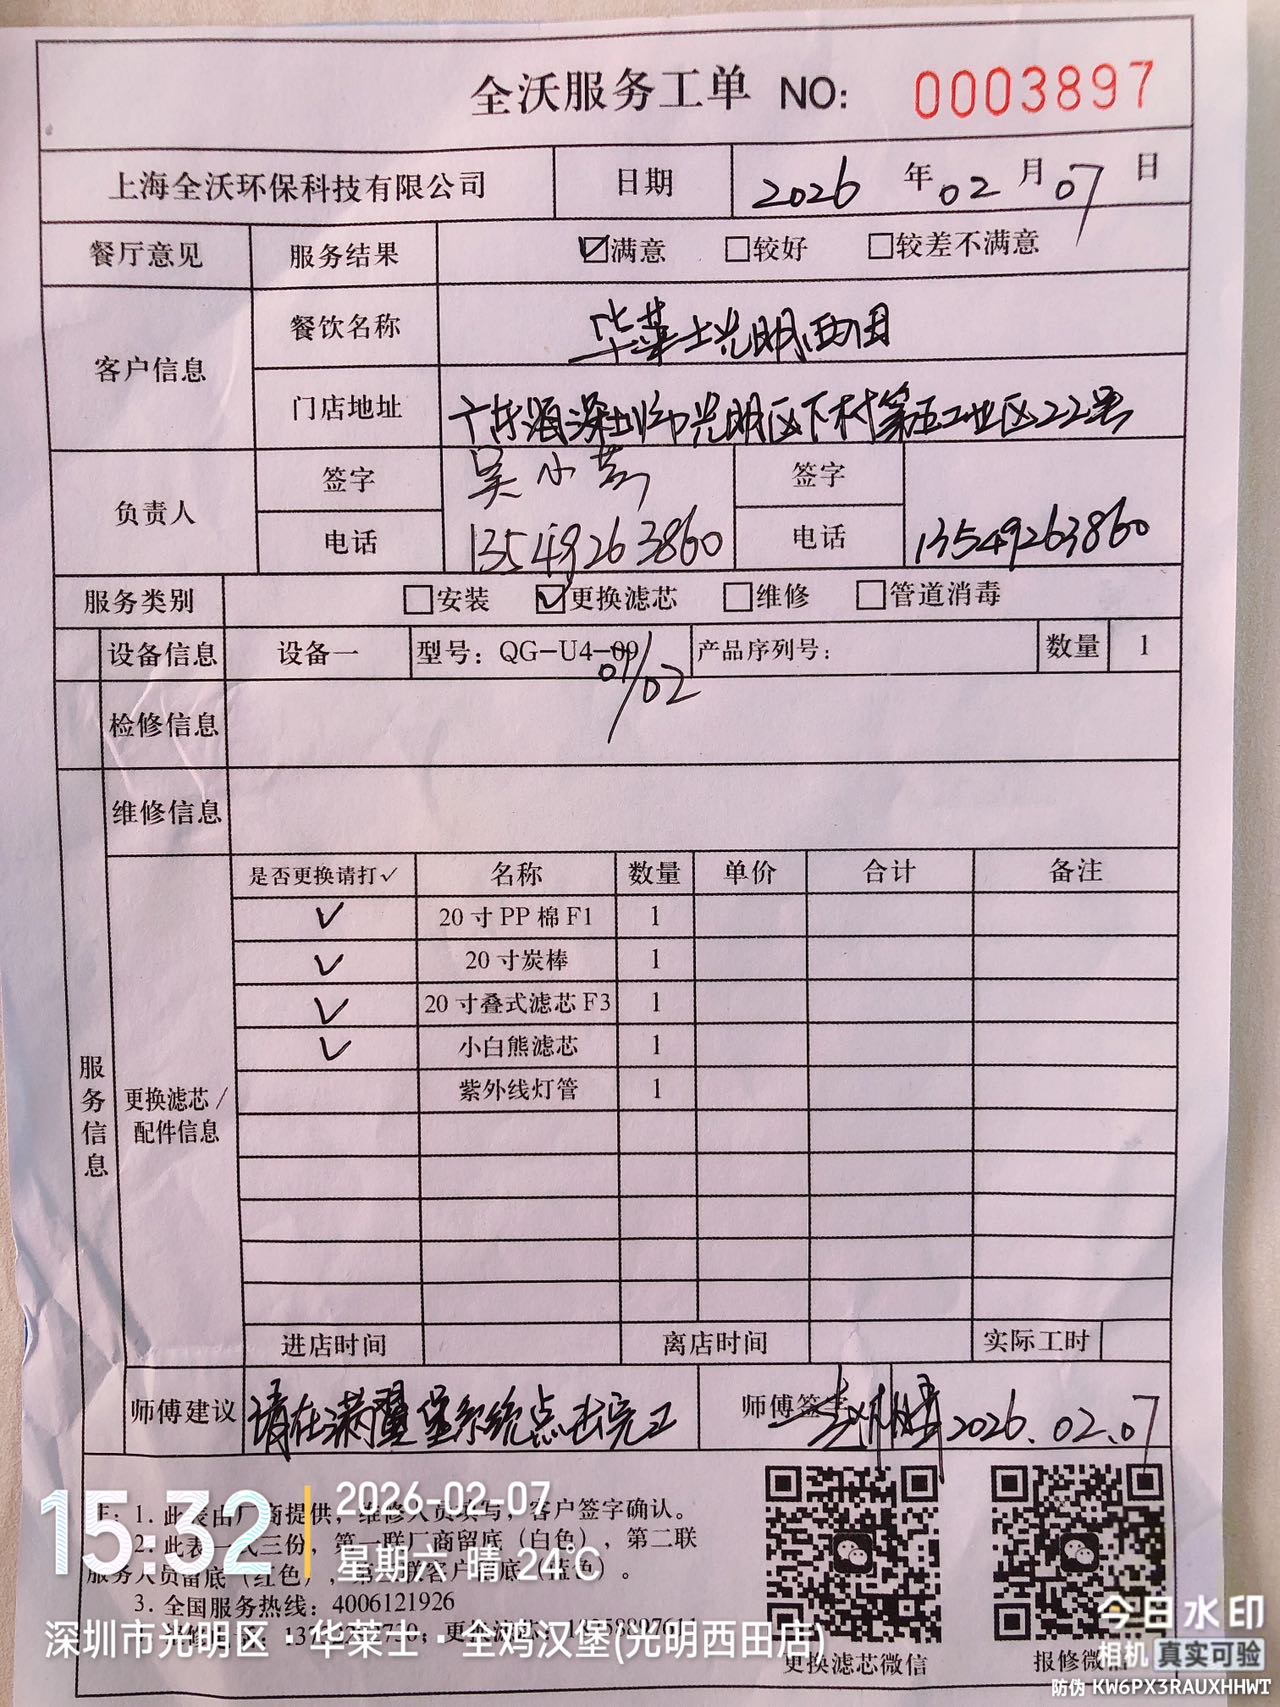 全沃服务工单 NO: 0003897
上海全沃环保科技有限公司 日期 2026 年 02 月 07 日
餐厅意见 服务结果 ☑满意 □较好 □较差不满意
客户信息 餐饮名称 华莱士光明西田
门店地址 广东海深圳市光明区下村第五工业区22号
负责人 签字 吴小 签字
电话 13549263860 电话 13549263860
服务类别 □安装 ☑更换滤芯 □维修 □管道消毒
设备信息 设备一 型号：QG-U4-09 产品序列号： 数量 1
01/02
检修信息
维修信息
服务信息
更换滤芯/
配件信息
是否更换请打✓ 名称 数量 单价 合计 备注
✓ 20寸PP棉F1 1
✓ 20寸炭棒 1
✓ 20寸叠式滤芯F3 1
✓ 小白熊滤芯 1
紫外线灯管 1
进店时间 离店时间 实际工时
师傅建议 请在满翼堡系统点击完工 师傅签字 2026.02.07
注：1. 此表由厂商提供，维修人员填写，客户签字确认。
2. 此表一式三份，第一联厂商留底（白色），第二联
服务人员留底（红色），第三联客户留底（蓝色）。
3. 全国服务热线：4006121926
更换滤芯微信 报修微信
15:32
2026-02-07
星期六 晴 24℃
深圳市光明区·华莱士·全鸡汉堡(光明西田店)
今日水印
相机 真实可验
防伪 KW6PX3RAUXHHWT